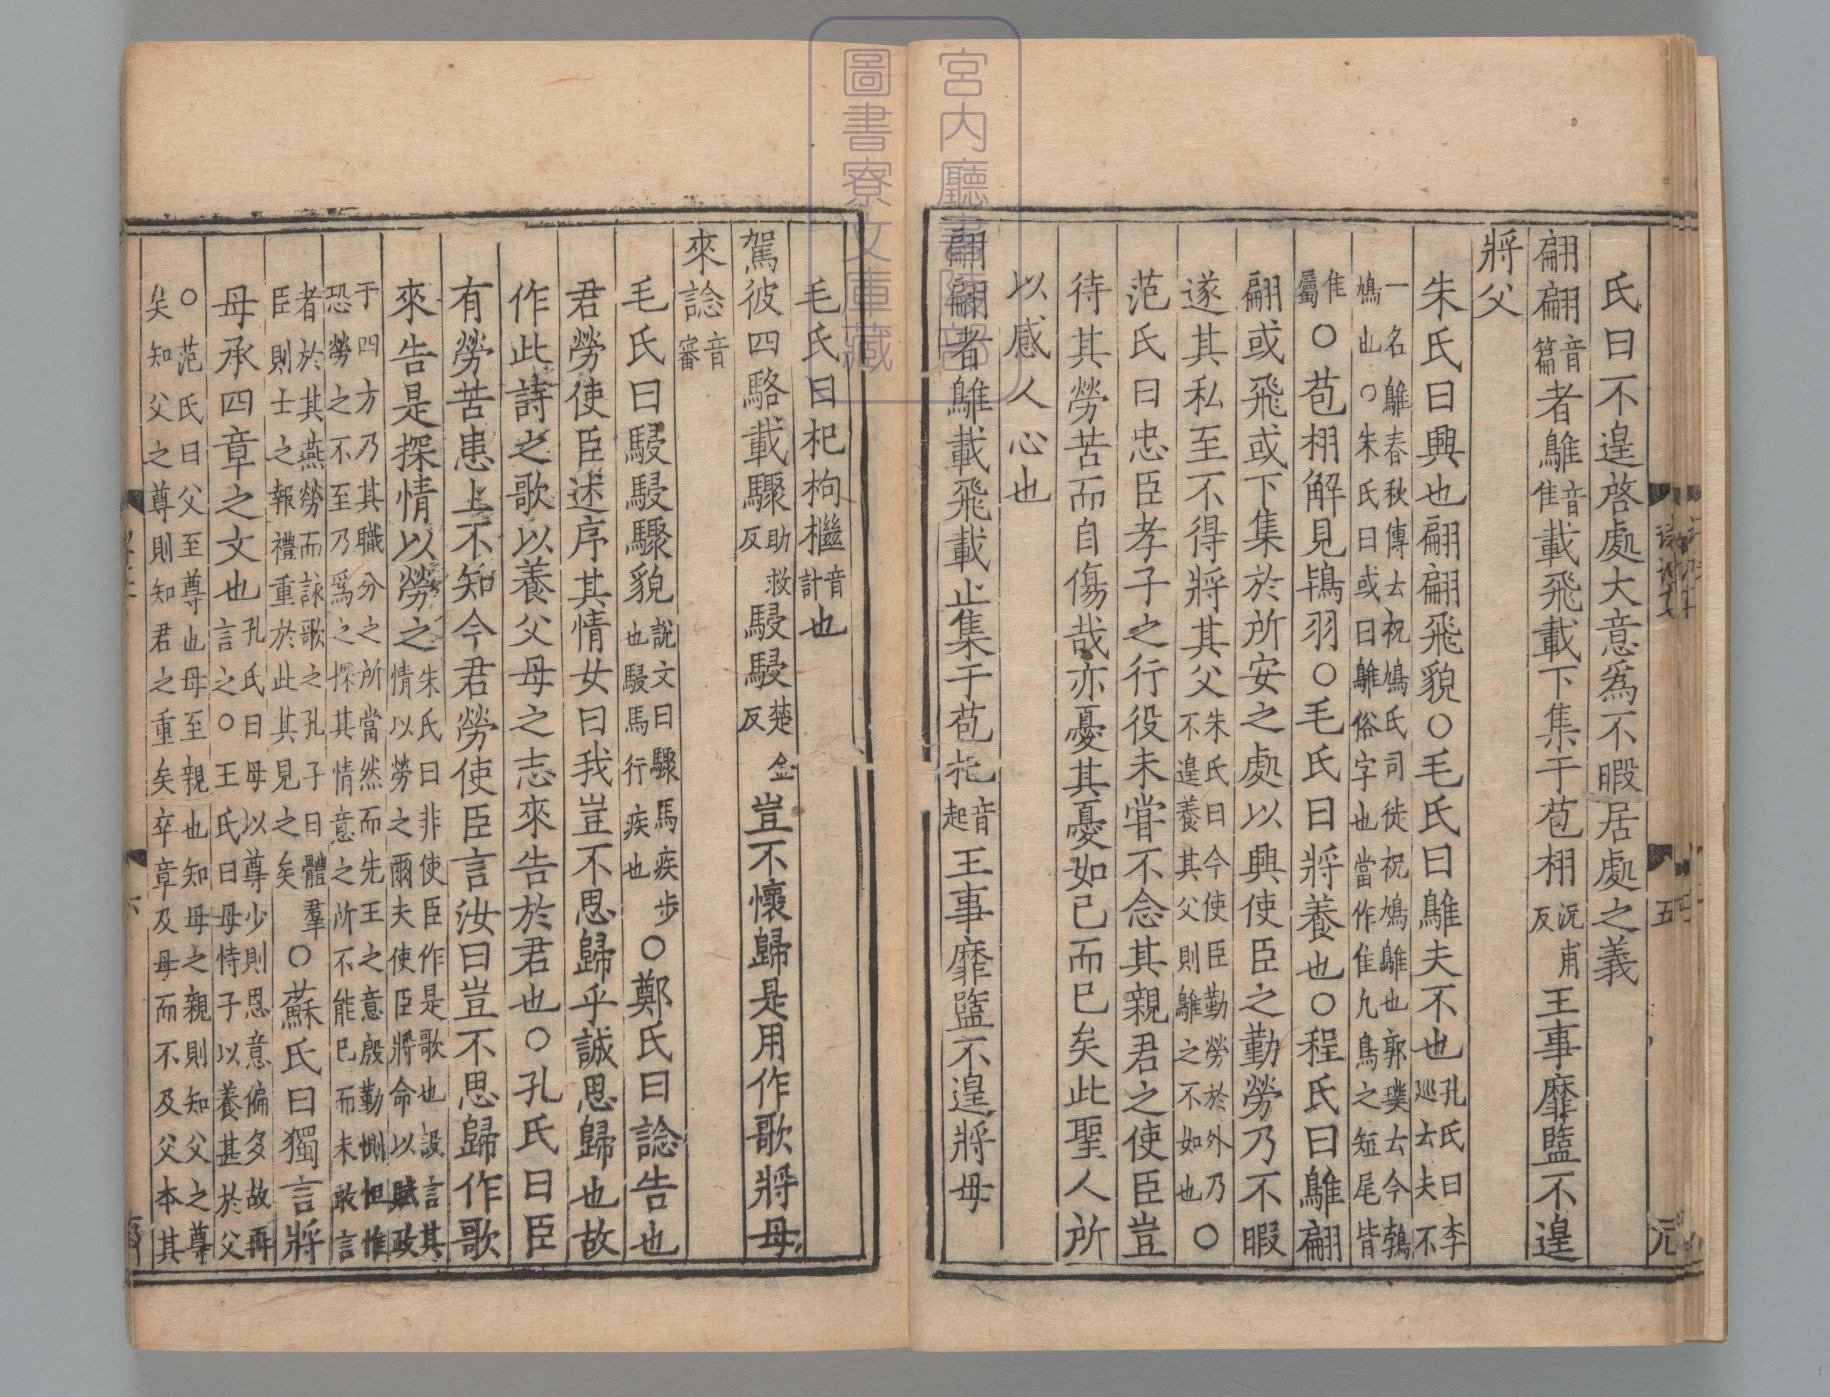 氏曰不遑啓處大意爲不暇居處之義
翩翩音篇者鵻音隹載飛載下集于苞栩況甫反王事靡盬不遑
將父
朱氏曰興也翩翩飛貌○毛氏曰鵻夫不也孔氏曰李巡云夫不
一名鵻春秋傳云祝鳩氏司徒祝鳩鵻也郭璞云今鵓鳩也○朱氏曰或曰鵻俗字也當作隹凡鳥之短尾皆
隹屬○苞栩解見鴇羽○毛氏曰將養也○程氏曰鵻翩
翩或飛或下集於所安之處以興使臣之勤勞乃不暇
遂其私至不得將其父朱氏曰今使臣勤勞於外乃不遑養其父則鵻之不如也○
范氏曰忠臣孝子之行役未嘗不念其親君之使臣豈
待其勞苦而自傷哉亦憂其憂如已而已矣此聖人所
以感人心也
翩翩者鵻載飛載止集于苞杞音起王事靡盬不遑將母
毛氏曰杞枸檵音計也
駕彼四駱載驟助救反駸駸楚金反豈不懷歸是用作歌將母
來諗音審
毛氏曰駸駸驟貌說文曰驟馬疾步也駸馬行疾也○鄭氏曰諗告也
君勞使臣述序其情女曰我豈不思歸乎誠思歸也故
作此詩之歌以養父母之志來告於君也○孔氏曰臣
有勞苦患上不知今君勞使臣言汝曰豈不思歸作歌
來告是探情以勞之朱氏曰非使臣作是歌也設言其情以勞之爾夫使臣將命以賦政
于四方乃其職分之所當然而先王之意殷勤惻怛惟恐勞之不至乃爲之探其情意之所不能已而未敢言
者於其燕勞而詠歌之孔子曰體羣臣則士之報禮重於此其見之矣○蘇氏曰獨言將
母承四章之文也孔氏曰母以尊少則恩意偏多故再言之○王氏曰母恃子以養甚於父
○范氏曰父至尊也母至親也知母之親則知父之尊矣知父之尊則知君之重矣卒章及母而不及父本其